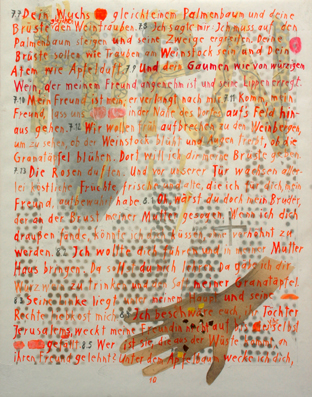 7.7 Dein Wuchs gleicht einem Palmenbaum und deine
Brüste den Weintrauben. 7.8 Ich sagte mir: Ich muss auf den
Palmenbaum steigen und seine Zweige ergreifen. Deine
Brüste sollen wie Trauben am Weinstock sein und Dein
Atem wie Apfelduft. 7.9 Und dein Gaumen wie von würzigem
Wein, der meinem Freund angenehm ist und eine Lippen erregt.
7.10 Mein Freund ist mein, er verlangt nach mir. 7.11 Komm, mein
Freund, lass uns in der Nähe des Dorfes aufs Feld hin-
aus gehen. 7.12 Wir wollen aufbrechen zu den Weinbergen,
um zu sehen, ob der Weinstock blüht und treibt, ob die
Granatäpfel blühen. Dort will ich dir meine Brüste geben.
7.13 Die Rosen duften. Und vor unserer Tür warten aller-
lei köstliche Früchte, frische und alte, die ich für dich, mein
Freund, aufbewahrt habe. 8.1 Oh, wärst du doch mein Bruder,
der an der Brust meiner Mutter gesogen. Wenn ich dich
draußen fände, könnte ich dich küssen verhöhnt zu
werden. 8.2 Ich wollte dich führen und in meiner Mutter
Haus bringen. Da sollst du mich lehren. Da gäbe ich dir
Würzwein zu trinken und den Saft meiner Granatäpfel.
8.3 Seine Linke liegt unter meinem Haupt und seine
Rechte herzt mich. 8.4 Ich beschwöre euch, ihr Töchter
Jerusalems, weckt meine Freundin nicht auf, bis es ihr selbst
gefällt. 8.5 Wer ist sie, die aus der Wüste kommt, an
ihren Freund gelehnt? Unter dem Apfelbaum wecke ich dich,